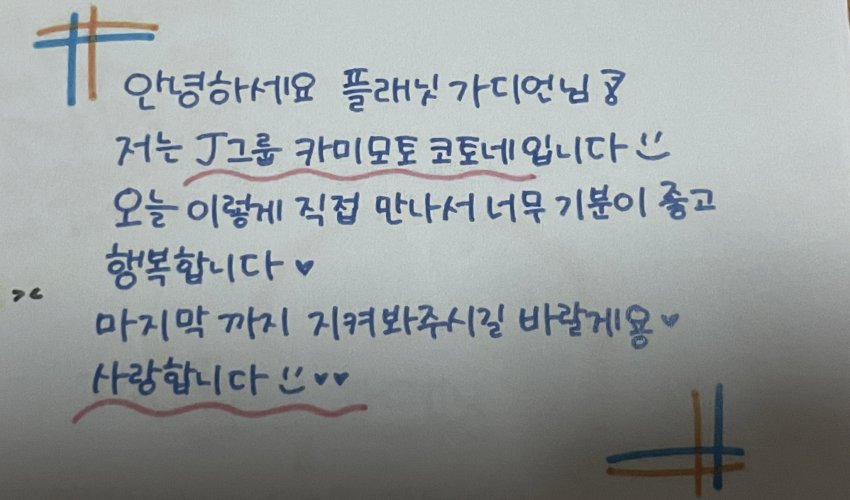 안녕하세요 플래닛 가디언님!
저는 J그룹 카미모토 코토네입니다
오늘 이렇게 직접 만나서 너무 기분이 좋고
행복합니다 ♥
마지막 까지 지켜봐주시길 바랄게용 ♥
사랑합니다 ♥♥